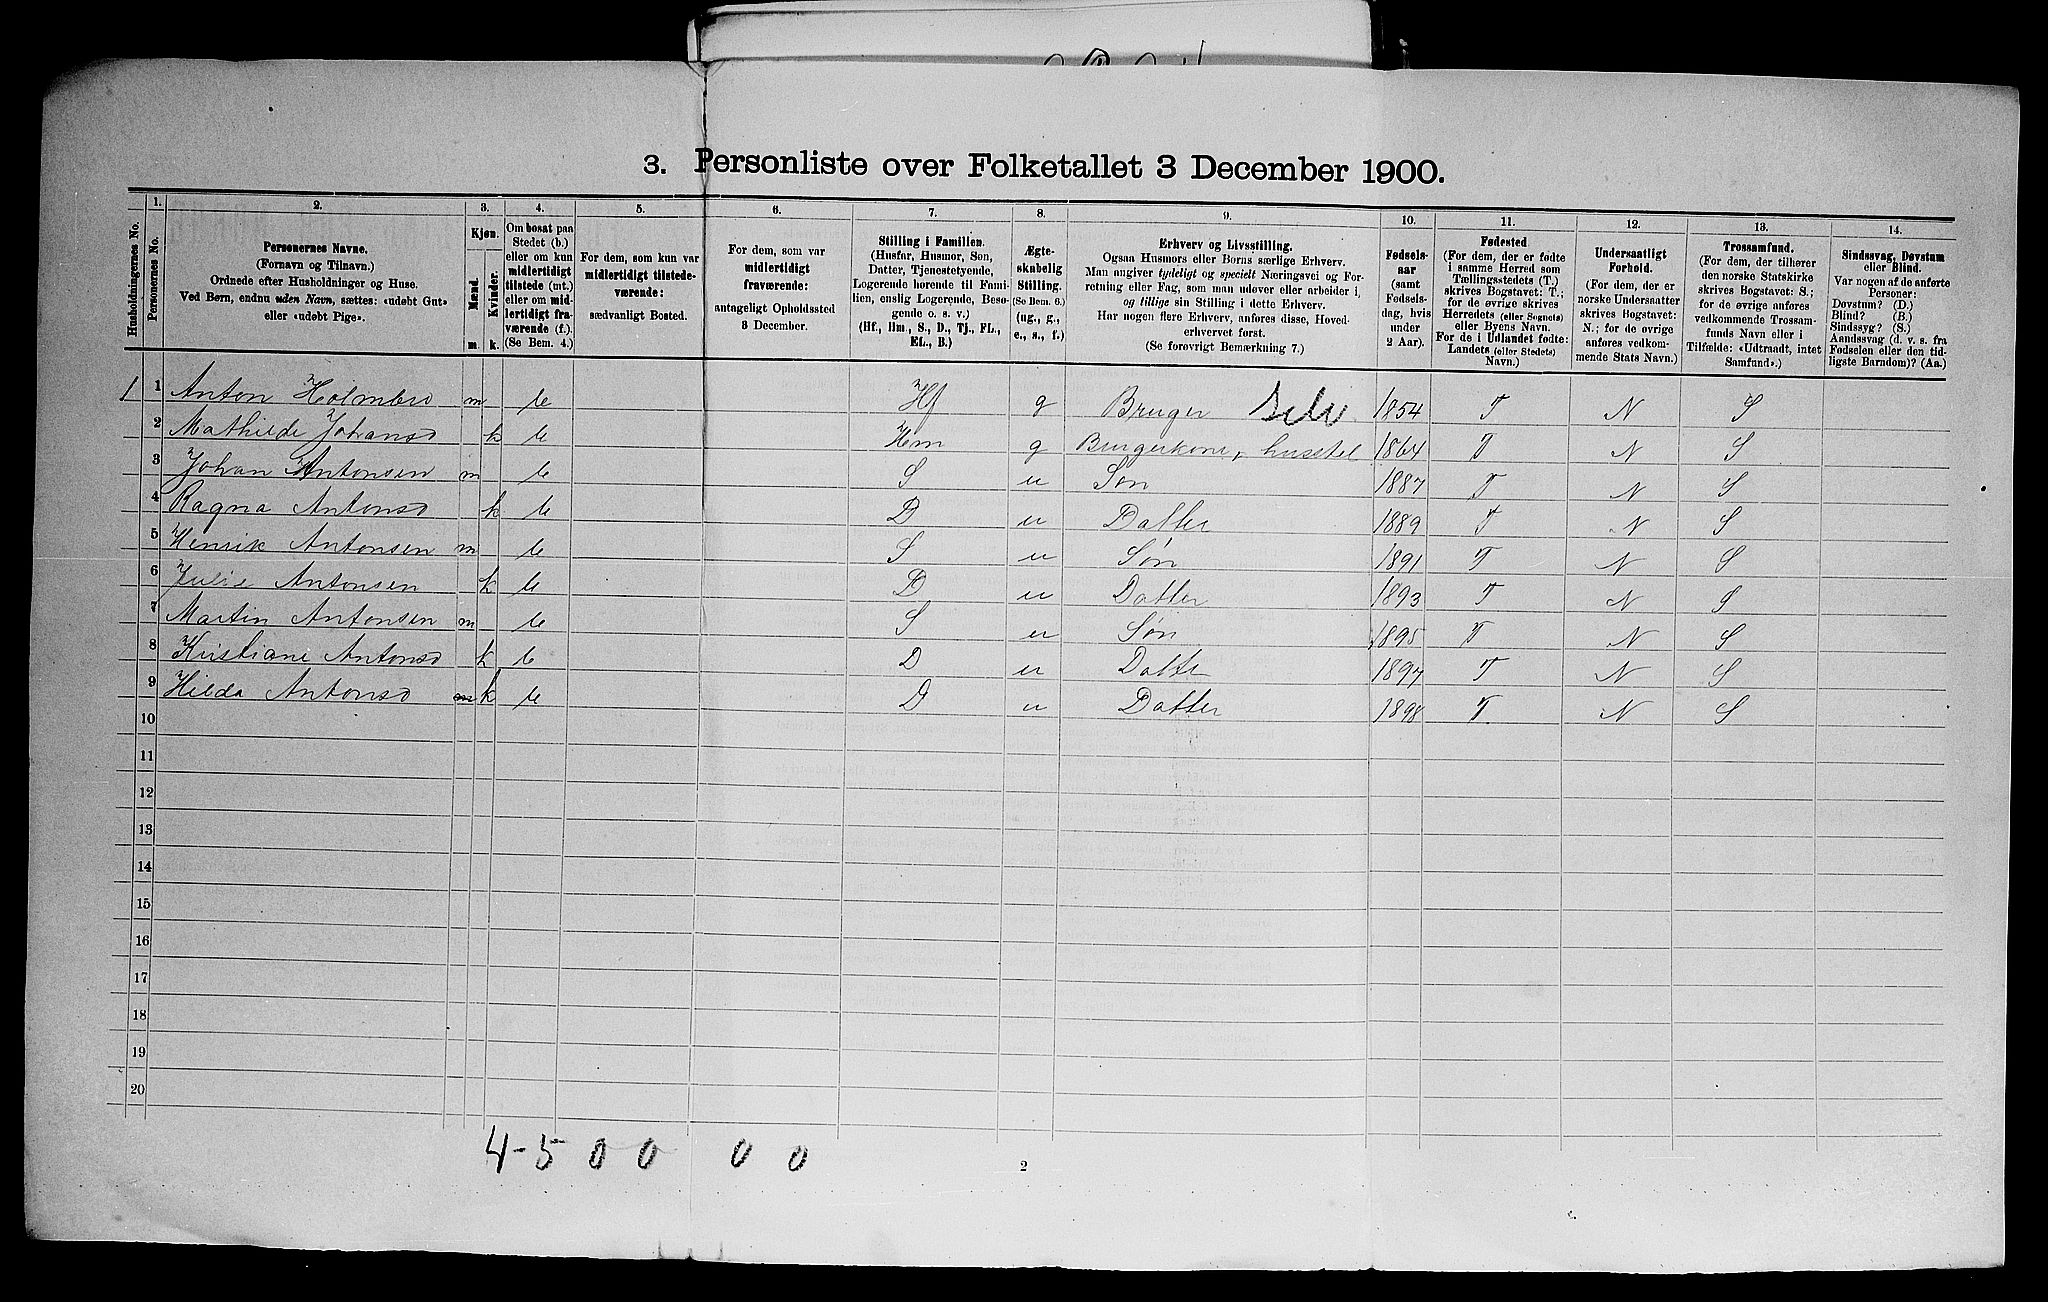 3. Personliste over Folketallet 3 December 1900.
Husholdningernes No.
1. Personernes No.
2. Personernes Navne. (Fornavn og Tilnavn.) Ordnede efter Husholdninger og Huse. Ved Børn, endnu uden Navn, sættes: «udøbt Gut» eller «udøbt Pige».
3. Kjøn. Mænd. m. Kvinder. k.
4. Om bosat paa Stedet (b.) eller om kun midlertidigt tilstede (mt.) eller om midlertidigt fraværende (f.). (Se Bem. 4.)
5. For dem, som kun midlertidigt tilstedeværende: sædvanligt Bosted.
6. For dem, som var midlertidigt fraværende: antageligt Opholdssted 3 December.
7. Stilling i Familien. (Husfar, Husmor, Søn, Datter, Tjenestetyende, Logerende hørende til Familien, enslig Logerende, Besøgende o. s. v.) (Hf., Hm., S., D., Tj., FL., EL., B.)
8. Ægteskabelig Stilling. (Se Bem. 6.) (ug., g., e., s., f.)
9. Erhverv og Livsstilling. Ogsaa Husmors eller Børns særlige Erhverv. Man angiver tydeligt og specielt Næringsvei og Forretning eller Fag, som man udøver eller arbeider i, og tillige sin Stilling i dette Erhverv. Har nogen flere Erhverv, anføres disse, Hovederhvervet først. (Se forøvrigt Bemærkning 7.)
10. Fødselsaar (samt Fødselsdag, hvis under 2 Aar).
11. Fødested. (For dem, der er fødte i samme Herred som Tællingsstedets (T.) skrives Bogstavet: T.; for de øvrige skrives Herredets (eller Sognets) eller Byens Navn. For de i Udlandet fødte: Landets (eller Stedets) Navn.)
12. Undersaatligt Forhold. (For dem, der er norske Undersaatter skrives Bogstavet: N.; for de øvrige anføres vedkommende Stats Navn.)
13. Trossamfund. (For dem, der tilhører den norske Statskirke skrives Bogstavet: S.; for de øvrige anføres vedkommende Trossamfunds Navn eller i Tilfælde: «Udtraadt, intet Samfund».)
14. Sindssvag, Døvstum eller Blind. Var nogen af de anførte Personer: Døvstum? (D.) Blind? (B.) Sindssyg? (S.) Aandssvag (d. v. s. fra Fødselen eller den tidligste Barndom)? (Aa.)
1 1 Anton Holmbro m b Hf g Bruger Selv 1854 T N S
2 Mathilde Johansd k b Hm g Brugerkone, husstel 1864 T N S
3 Johan Antonsen m b S u Søn 1887 T N S
4 Ragna Antonsd k b D u Datter 1889 T N S
5 Henrik Antonsen m b S u Søn 1891 T N S
6 Julie Antonsen k b D u Datter 1893 T N S
7 Martin Antonsen m b S u Søn 1895 T N S
8 Kristiane Antonsd k b D u Datter 1897 T N S
9 Hilda Antonsd m k b D u Datter 1898 T N S
10
11
12
13
14
15
16
17
18
19
20
4-5 0 0 0 0
2